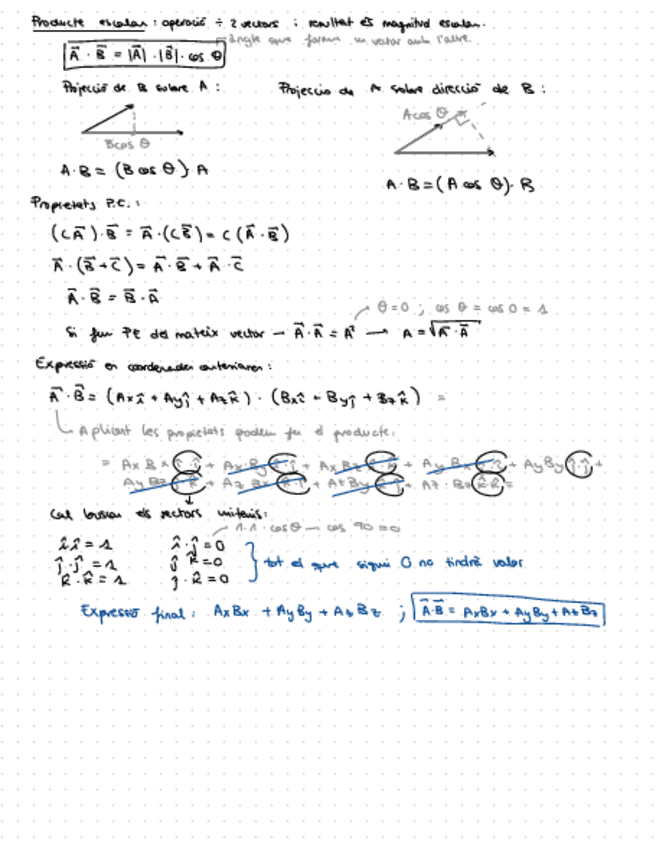 Producte escalar : operació ÷ 2 vectors ; resultat és magnitud escalar.
angle que forma un vector amb l'altre.
A⃗ · B⃗ = |A⃗| · |B⃗| · cos θ
Projecció de B sobre A :
Projecció de A sobre direcció de B :
A cos θ
B cos θ
A · B = (B cos θ) · A
A · B = (A cos θ) · B
Propietats P.E. :
(cA⃗) · B⃗ = A⃗ · (cB⃗) = c (A⃗ · B⃗)
A⃗ · (B⃗ + C⃗) = A⃗ · B⃗ + A⃗ · C⃗
A⃗ · B⃗ = B⃗ · A⃗
θ = 0 ; cos θ = cos 0 = 1
Si fem PE del mateix vector → A⃗ · A⃗ = A² → A = √A⃗ · A⃗
Expressió en coordenades cartesianes :
A⃗ · B⃗ = (Axî + Ayĵ + Azk̂) · (Bxî + Byĵ + Bzk̂) =
Aplicant les propietats podem fer el producte.
= AxBx î·î + AxBy î·ĵ + AxBz î·k̂ + AyBx ĵ·î + AyBy ĵ·ĵ +
AyBz ĵ·k̂ + AzBx k̂·î + AzBy k̂·ĵ + Az·Bz k̂·k̂ =
Cal buscar els vectors unitaris :
1·1·cos θ — cos 90 = 0
î·î = 1 î·ĵ = 0
ĵ·ĵ = 1 î k̂ = 0
k̂·k̂ = 1 ĵ·k̂ = 0
tot el que sigui 0 no tindrà valor
Expressió final : AxBx + AyBy + AzBz ; A⃗·B⃗ = AxBx + AyBy + AzBz